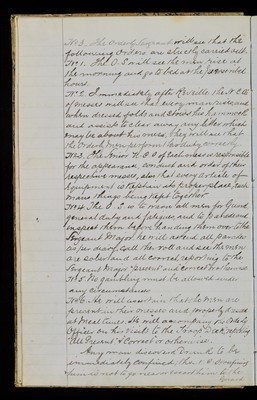 No 3. The Orderly Sergeant will see that the
following Orders are strictly carried out.
No 1. The O.S. will see the men rise at
the morning and go to bed at the
hour.
No 2. Immediately after Reveille the N.C.O's
of messes will see that every man rises and
when dressed folds and stows his hammock
and assist to clear away any litter which
may be about his mess, they will see that
the Orderly Men perform their duty correctly
No 3. The Senior N.C.O. of each mess is responsible
for the appearance, conduct and order of their
respective messes, also that every article of
Equipment is kept in its proper place, each
mans things being kept together
No 4. The O.S. is to warn all men for Guard,
general duty and fatigues, and to parade and
inspect them before handing them over to the
Sergeant Major, he will attend all parades
as per diary, call the roll and see the men
are sober and all correct, reporting to the
Sergeant Major "present" and correct or otherwise
No 5. No gambling must be allowed under
any circumstances
No 6. He will ascertain that the men are
present in their messes and properly dressed
at Meal times. He will accompany the Orderly
Officer on his visits to the Troop Deck, reporting
"All Present & Correct" or otherwise.
Any man discovered Drunk to be
immediately confined, the O.S.
himself not to go near or escort him to the
Guard